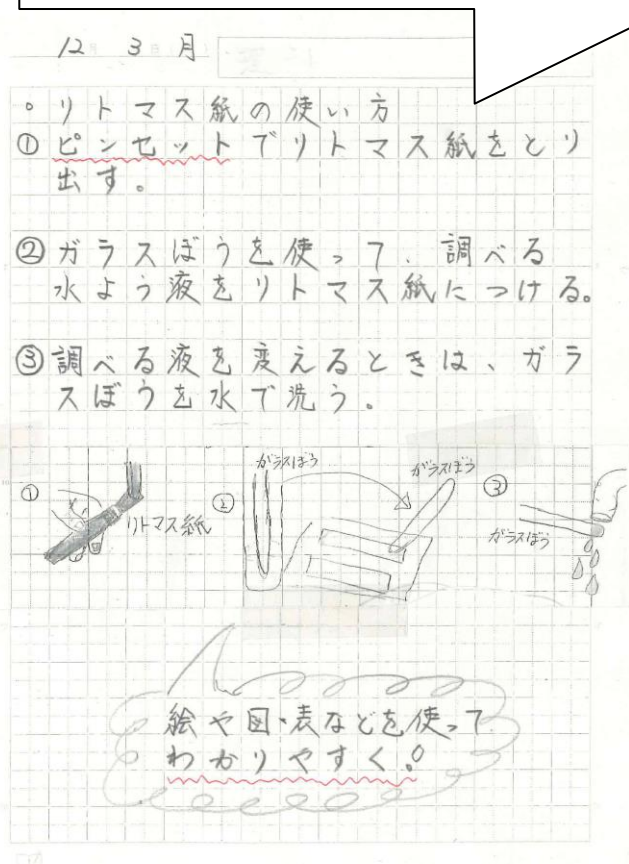 12月 3日 月
・リトマス紙の使い方
①ピンセットでリトマス紙をとり
出す。
②ガラスぼうを使って、調べる
水よう液をリトマス紙につける。
③調べる液を変えるときは、ガラ
スぼうを水で洗う。
①
リトマス紙
②
ガラスぼう
ガラスぼう
③
ガラスぼう
絵や図・表などを使って
わかりやすく!